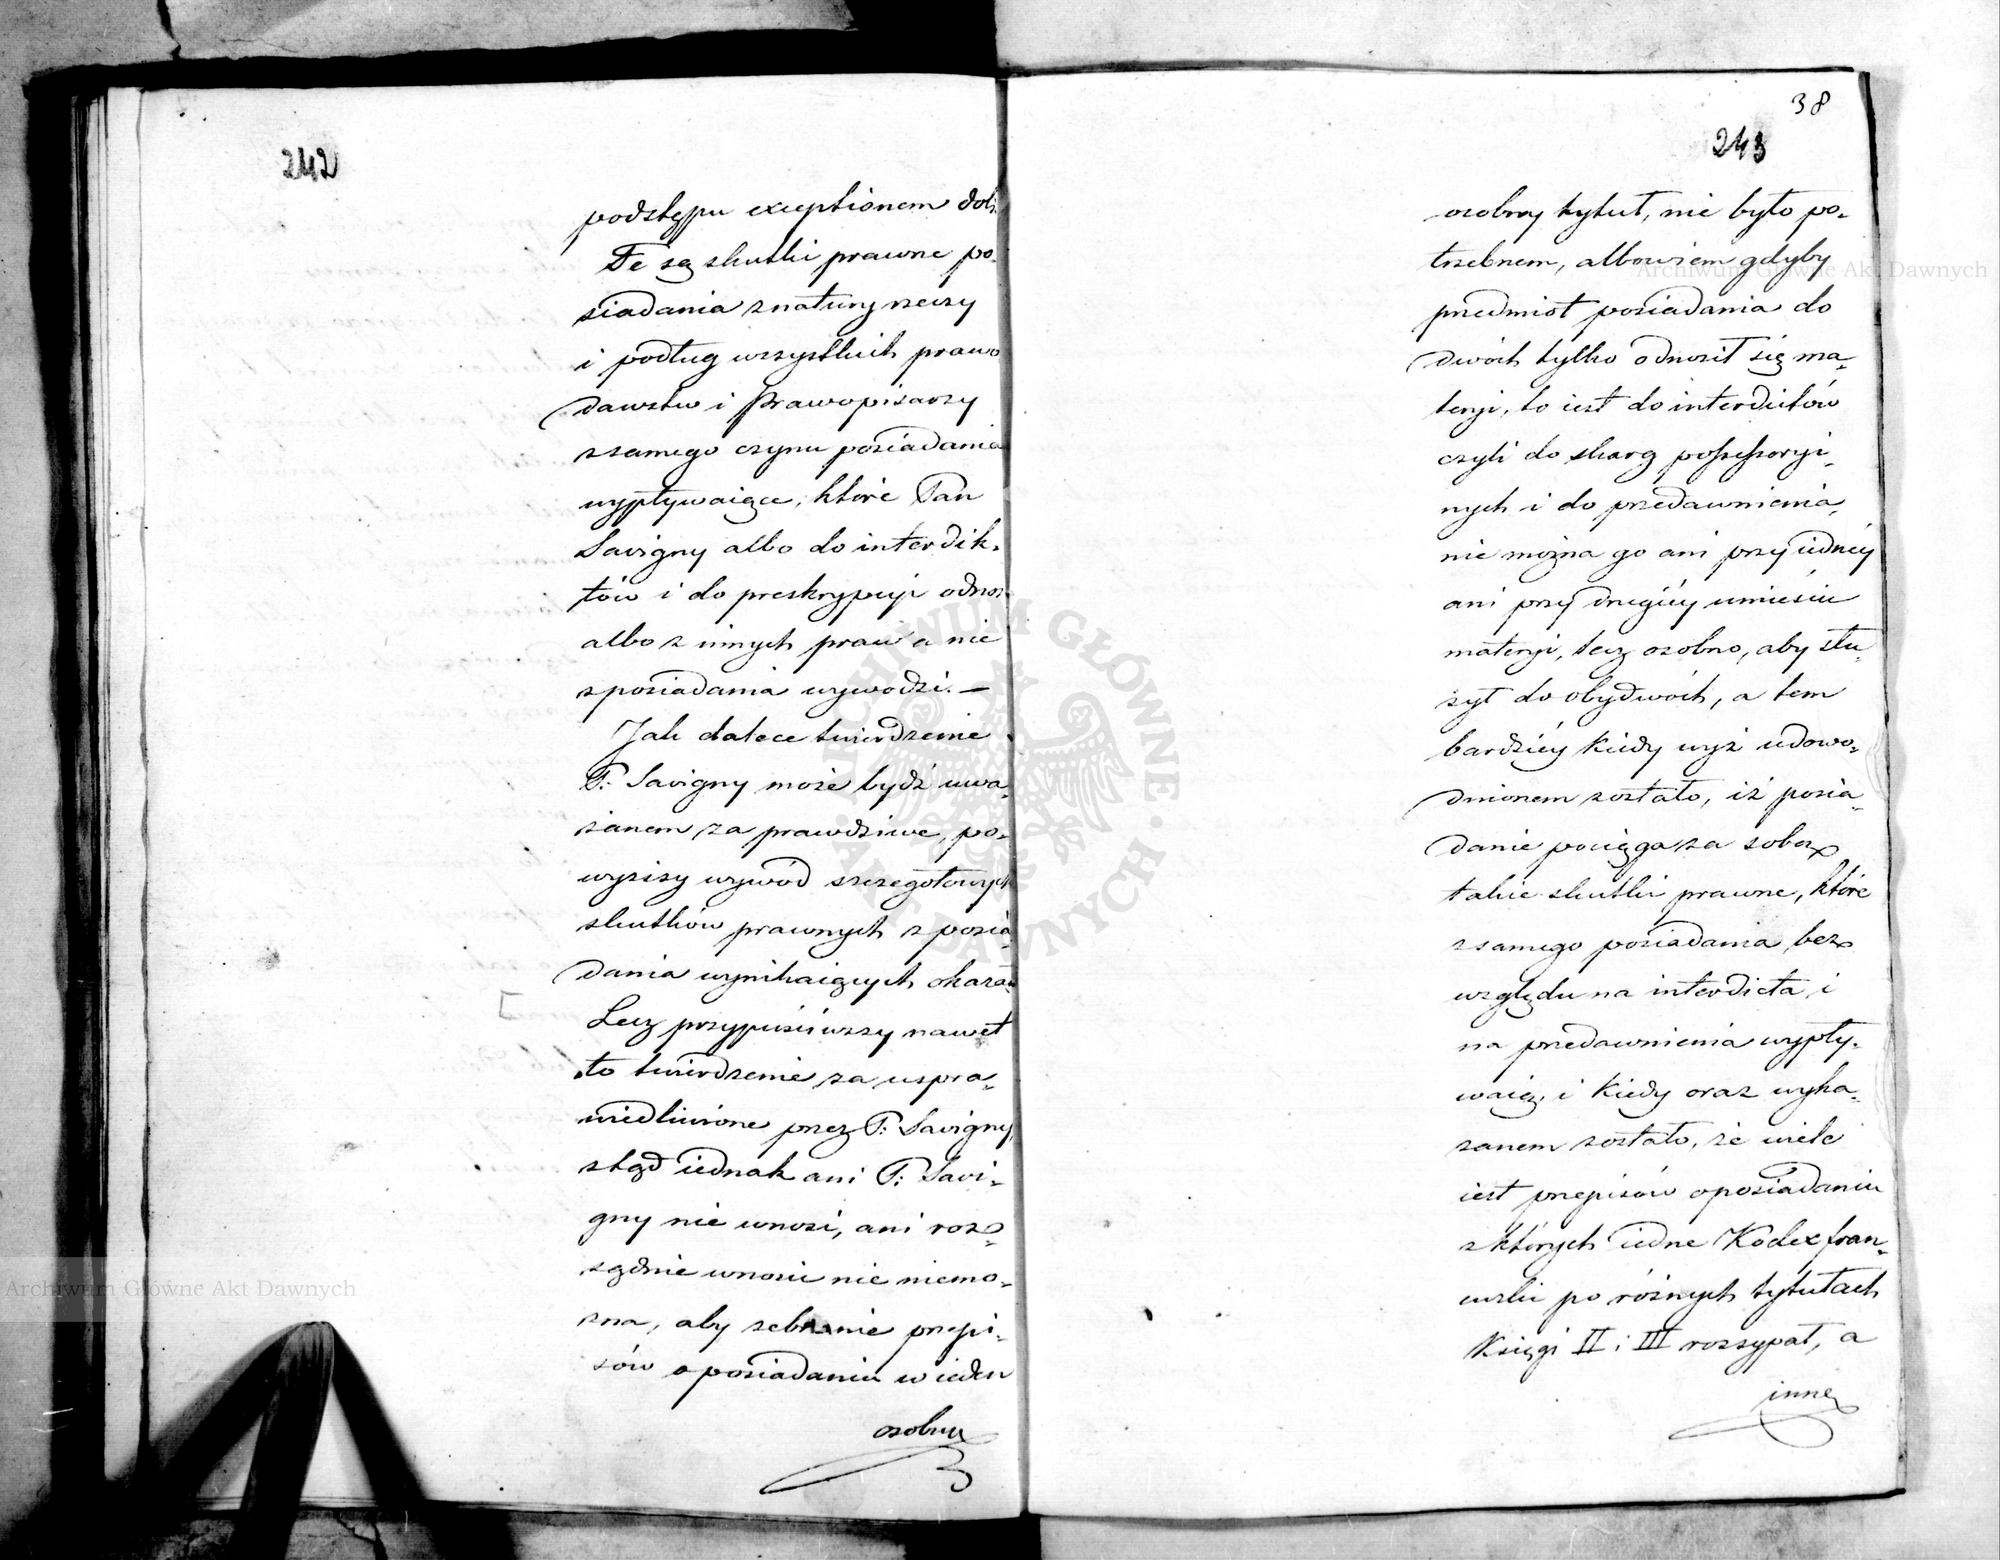 242
podstępu exceptionem doli.
Te są skutki prawne po-
siadania z natury rzeczy
i podług wszystkich prawo
dawstw i Prawopisarzy
z samego czynu posiadania
wypływaiące, które Pan
Savigny albo do interdik-
tów i do preskrypcyi odnosi
albo z innych praw a nie
z posiadania wywodzi. —
Jak dalece twierdzenie
P: Savigny może bydź uwa-
żanem za prawdziwe, po-
wyższy wywód szczegółowych
skutków prawnych z posia-
dania wynikaiących okazał
Lecz przypuściwszy nawet
to twierdzenie za uspra-
wiedliwione przez P: Savigny,
ztąd iednak ani P: Savi-
gny nie wnosi, ani roz-
sądnie wnosić nie niemo-
żna, aby zebranie przepi-
sów o posiadaniu w ieden
osobny
38
243
osobny tytuł, nie było po-
trzebnem, albowiem gdyby
przedmiot posiadania do
dwóch tylko odnosił się ma-
teryi, to iest do interdictów
czyli do skarg possessoryi-
nych i do przedawnienia,
nie można go ani przy iednéy
ani przy drugiéy umieścić
materyi, lecz osobno, aby słu-
żył do obydwóch, a tem
bardziéy kiedy wyż udowo-
dnionem zostało, iż posia-
danie pociąga za sobą
takie skutki prawne, które
z samego posiadania bez
względu na interdicta i
na przedawnienia wypły-
waią, i kiedy oraz wyka-
zanem zostało, że wiele
iest przepisów o posiadaniu
z których iedne Kodex fran-
cuzki po różnych tytułach
Księgi II i III rozsypał, a
inne
Archiwum Główne Akt Dawnych
Archiwum Główne Akt Dawnych
ARCHIWUM GŁÓWNE · AKT DAWNYCH ·